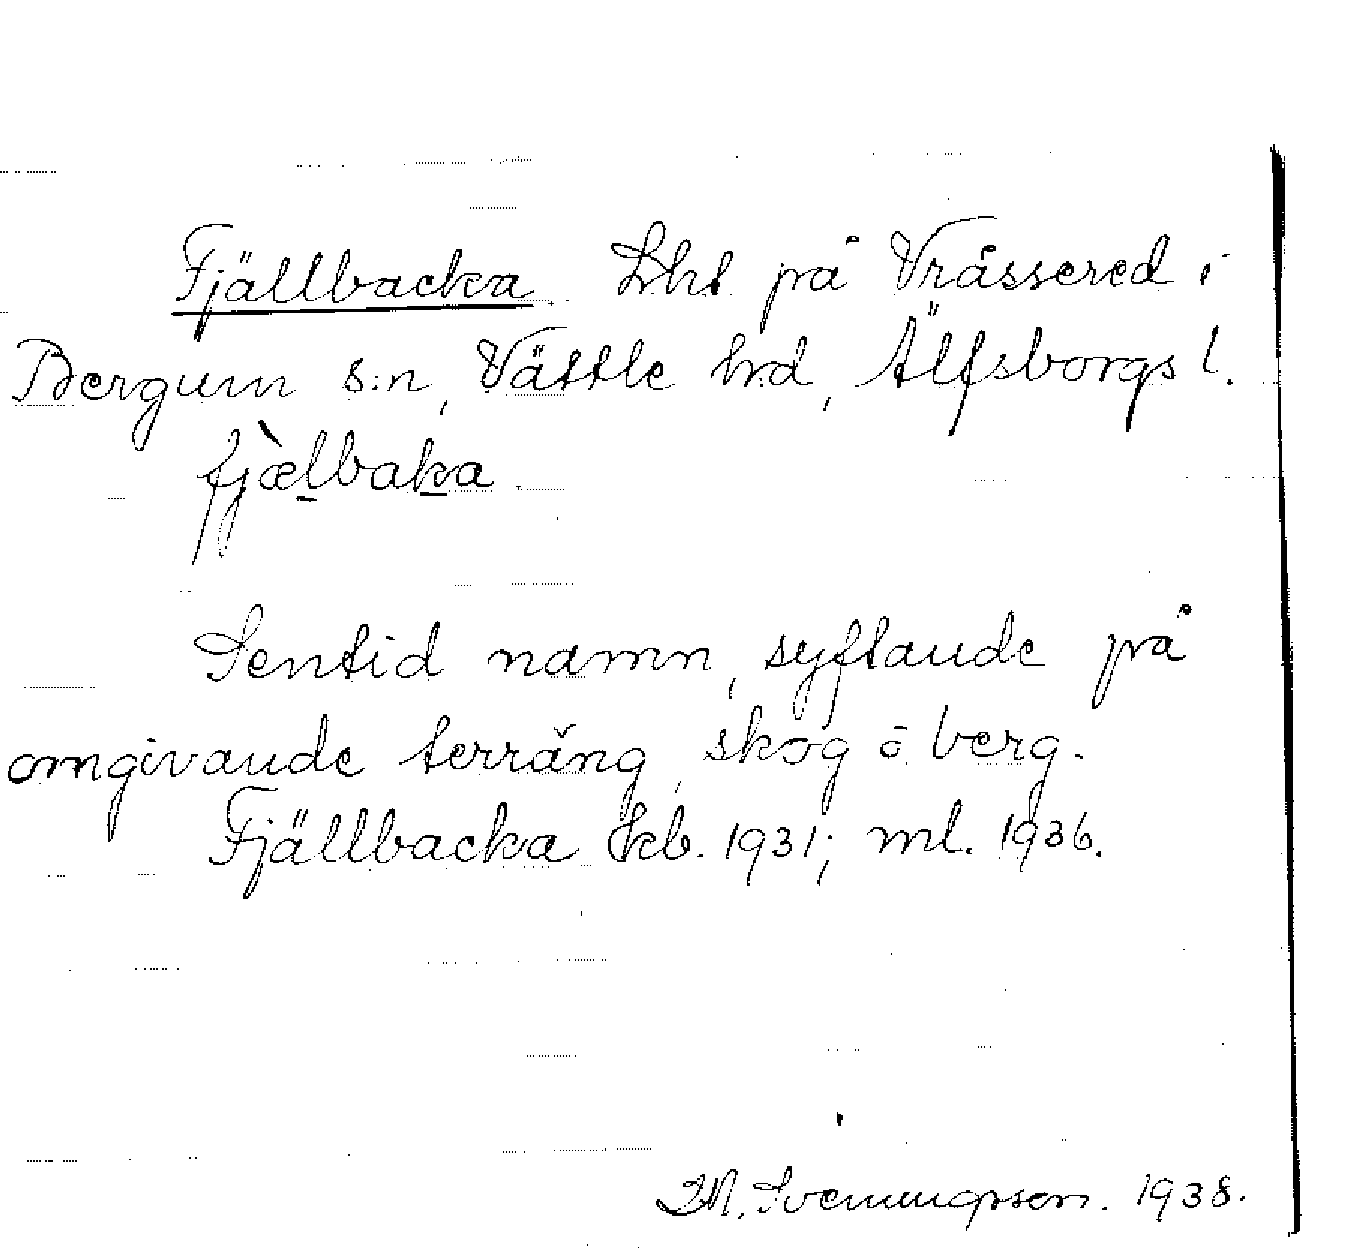 Fjällbacka. Lht på Vråssered i
Bergum s:n, Vättle hd, Älfsborgs l.
fjælbaka.
Sentid namn, syftande på
omgivande terräng, skog o berg.
Fjällbacka kb. 1931; ml. 1936.
Svenungsson. 1938.